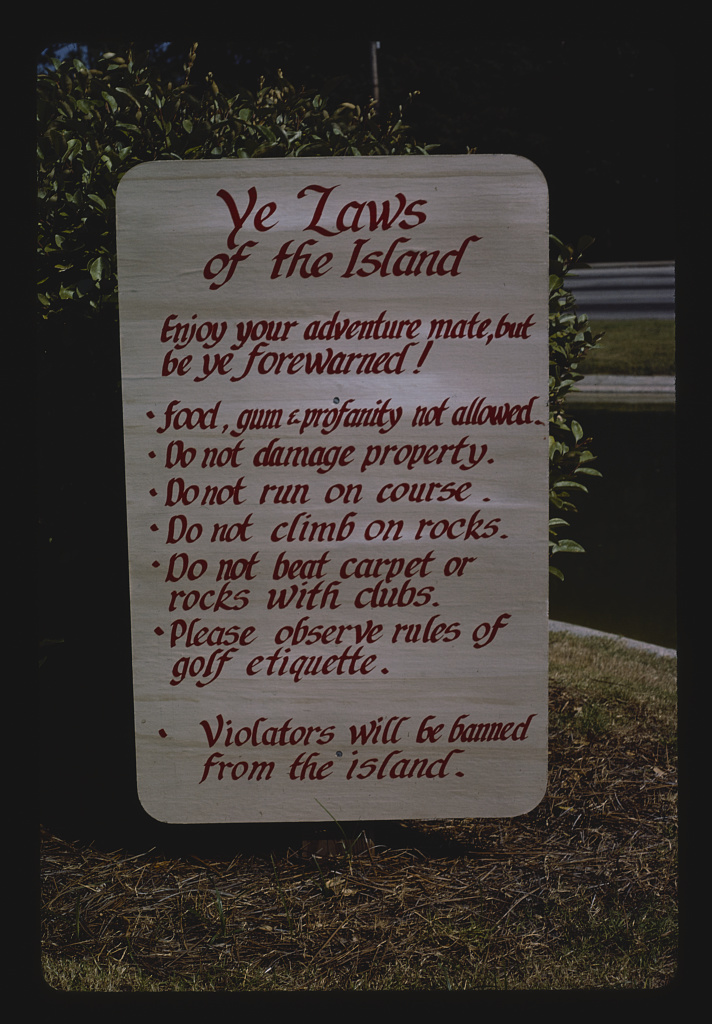 Ye Laws
of the Island
Enjoy your adventure mate, but
be ye forewarned!
• food, gum & profanity not allowed.
• Do not damage property.
• Do not run on course.
• Do not climb on rocks.
• Do not beat carpet or
rocks with clubs.
• Please observe rules of
golf etiquette.
• Violators will be banned
from the island.